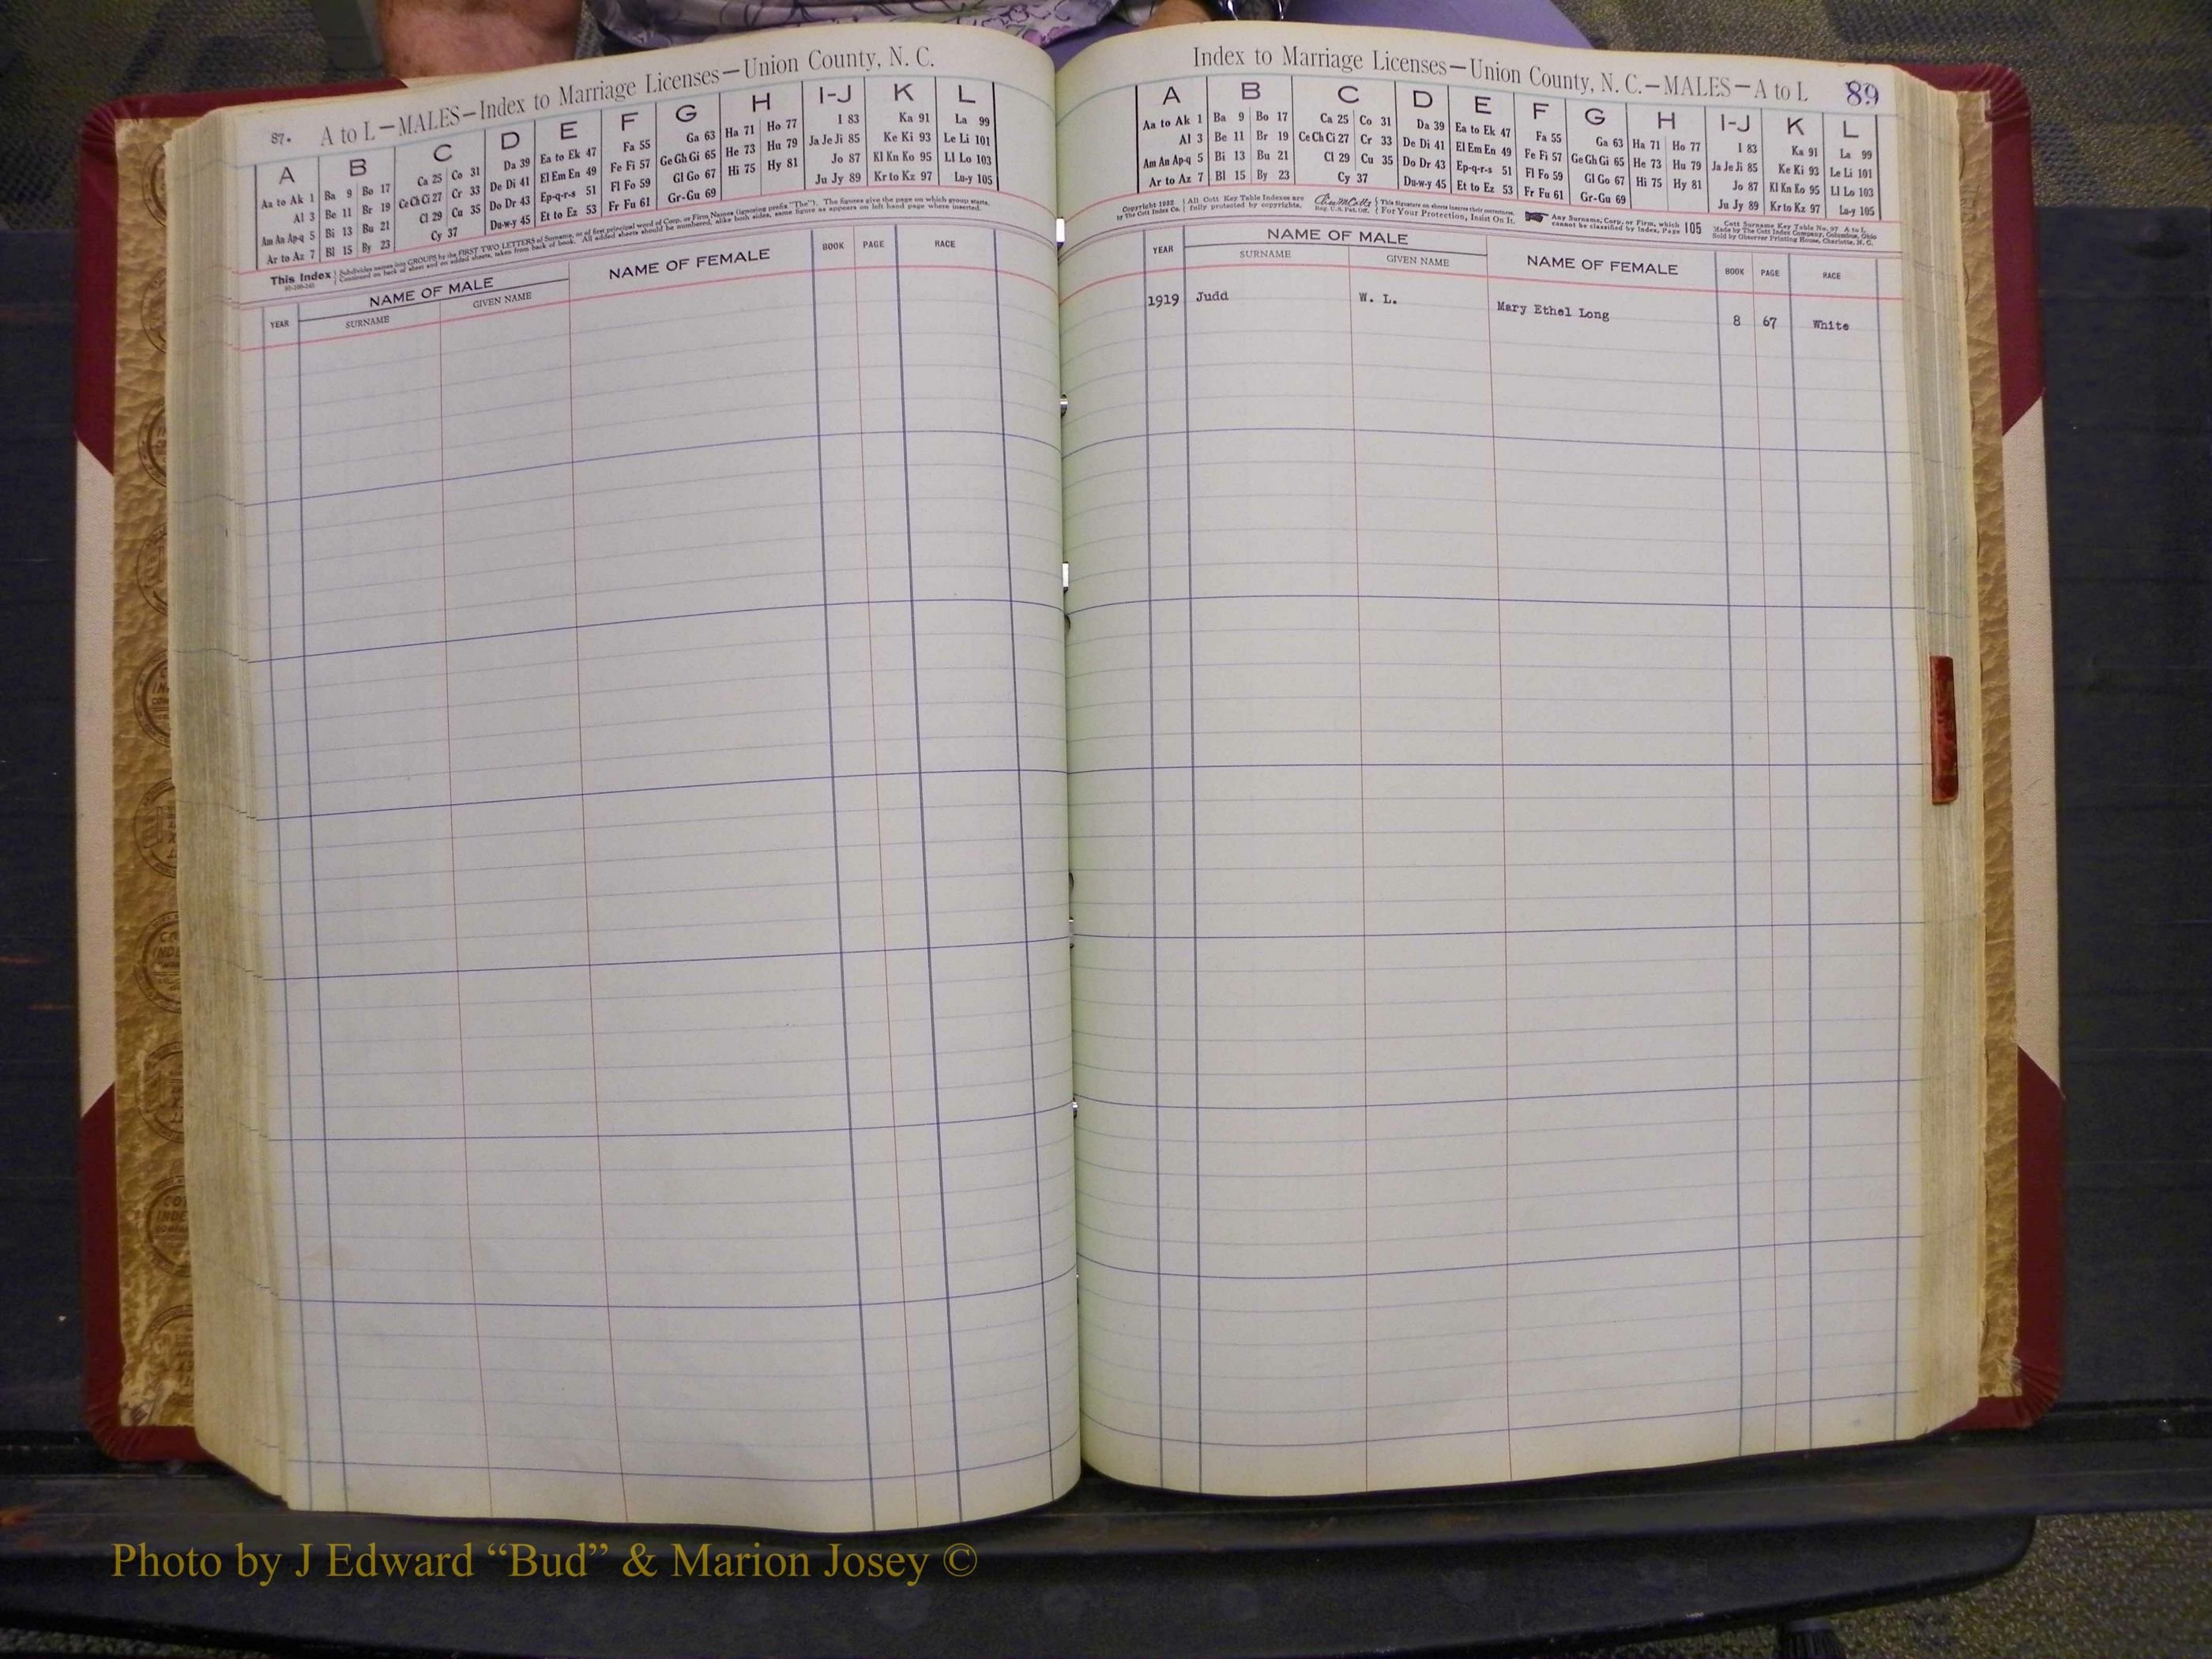 87. A to L—MALES—Index to Marriage Licenses—Union County, N. C.
A B C D E F G H I-J K L
Aa to Ak 1 Ba 9 Bo 17 Ca 25 Co 31 Da 39 Ea to Ek 47 Fa 55 Ga 63 Ha 71 Ho 77 I 83 Ka 91 La 99
Al 3 Be 11 Br 19 Ce Ch Ci 27 Cr 33 De Di 41 El Em En 49 Fe Fi 57 Ge Gh Gi 65 He 73 Hu 79 Ja Je Ji 85 Ke Ki 93 Le Li 101
Am An Ap-q 5 Bi 13 Bu 21 Cl 29 Cu 35 Do Dr 43 Ep-q-r-s 51 Fl Fo 59 Gl Go 67 Hi 75 Hy 81 Jo 87 Kl Kn Ko 95 Ll Lo 103
Ar to Az 7 Bl 15 By 23 Cy 37 Du-w-y 45 Et to Ez 53 Fr Fu 61 Gr-Gu 69 Ju Jy 89 Kr to Kz 97 Lu-y 105
This Index Subdivides names into GROUPS by the FIRST TWO LETTERS of Surname, or of first principal word of Corp. or Firm Names (ignoring prefix "The"). The figures give the page on which group starts.
Continued on back of sheet and on added sheets, taken from back of book. All added sheets should be numbered, alike both sides, same figure as appears on left hand page where inserted.
NAME OF MALE NAME OF FEMALE BOOK PAGE RACE
YEAR SURNAME GIVEN NAME
Index to Marriage Licenses—Union County, N. C.—MALES—A to L 89
A B C D E F G H I-J K L
Aa to Ak 1 Ba 9 Bo 17 Ca 25 Co 31 Da 39 Ea to Ek 47 Fa 55 Ga 63 Ha 71 Ho 77 I 83 Ka 91 La 99
Al 3 Be 11 Br 19 Ce Ch Ci 27 Cr 33 De Di 41 El Em En 49 Fe Fi 57 Ge Gh Gi 65 He 73 Hu 79 Ja Je Ji 85 Ke Ki 93 Le Li 101
Am An Ap-q 5 Bi 13 Bu 21 Cl 29 Cu 35 Do Dr 43 Ep-q-r-s 51 Fl Fo 59 Gl Go 67 Hi 75 Hy 81 Jo 87 Kl Kn Ko 95 Ll Lo 103
Ar to Az 7 Bl 15 By 23 Cy 37 Du-w-y 45 Et to Ez 53 Fr Fu 61 Gr-Gu 69 Ju Jy 89 Kr to Kz 97 Lu-y 105
Copyright 1932 All Cott Key Table Indexes are This Signature on sheets insures their correctness. Any Surname, Corp. or Firm, which 105 Cott Surname Key Table No. 97 A to L
by The Cott Index Co. fully protected by copyrights. Reg. U.S. Pat. Off. For Your Protection, Insist On It. cannot be classified by Index, Page Made by The Cott Index Company, Columbus, Ohio
Sold by Observer Printing House, Charlotte, N. C.
YEAR NAME OF MALE NAME OF FEMALE BOOK PAGE RACE
SURNAME GIVEN NAME
1919 Judd W. L. Mary Ethel Long 8 67 White
Photo by J Edward “Bud” & Marion Josey ©